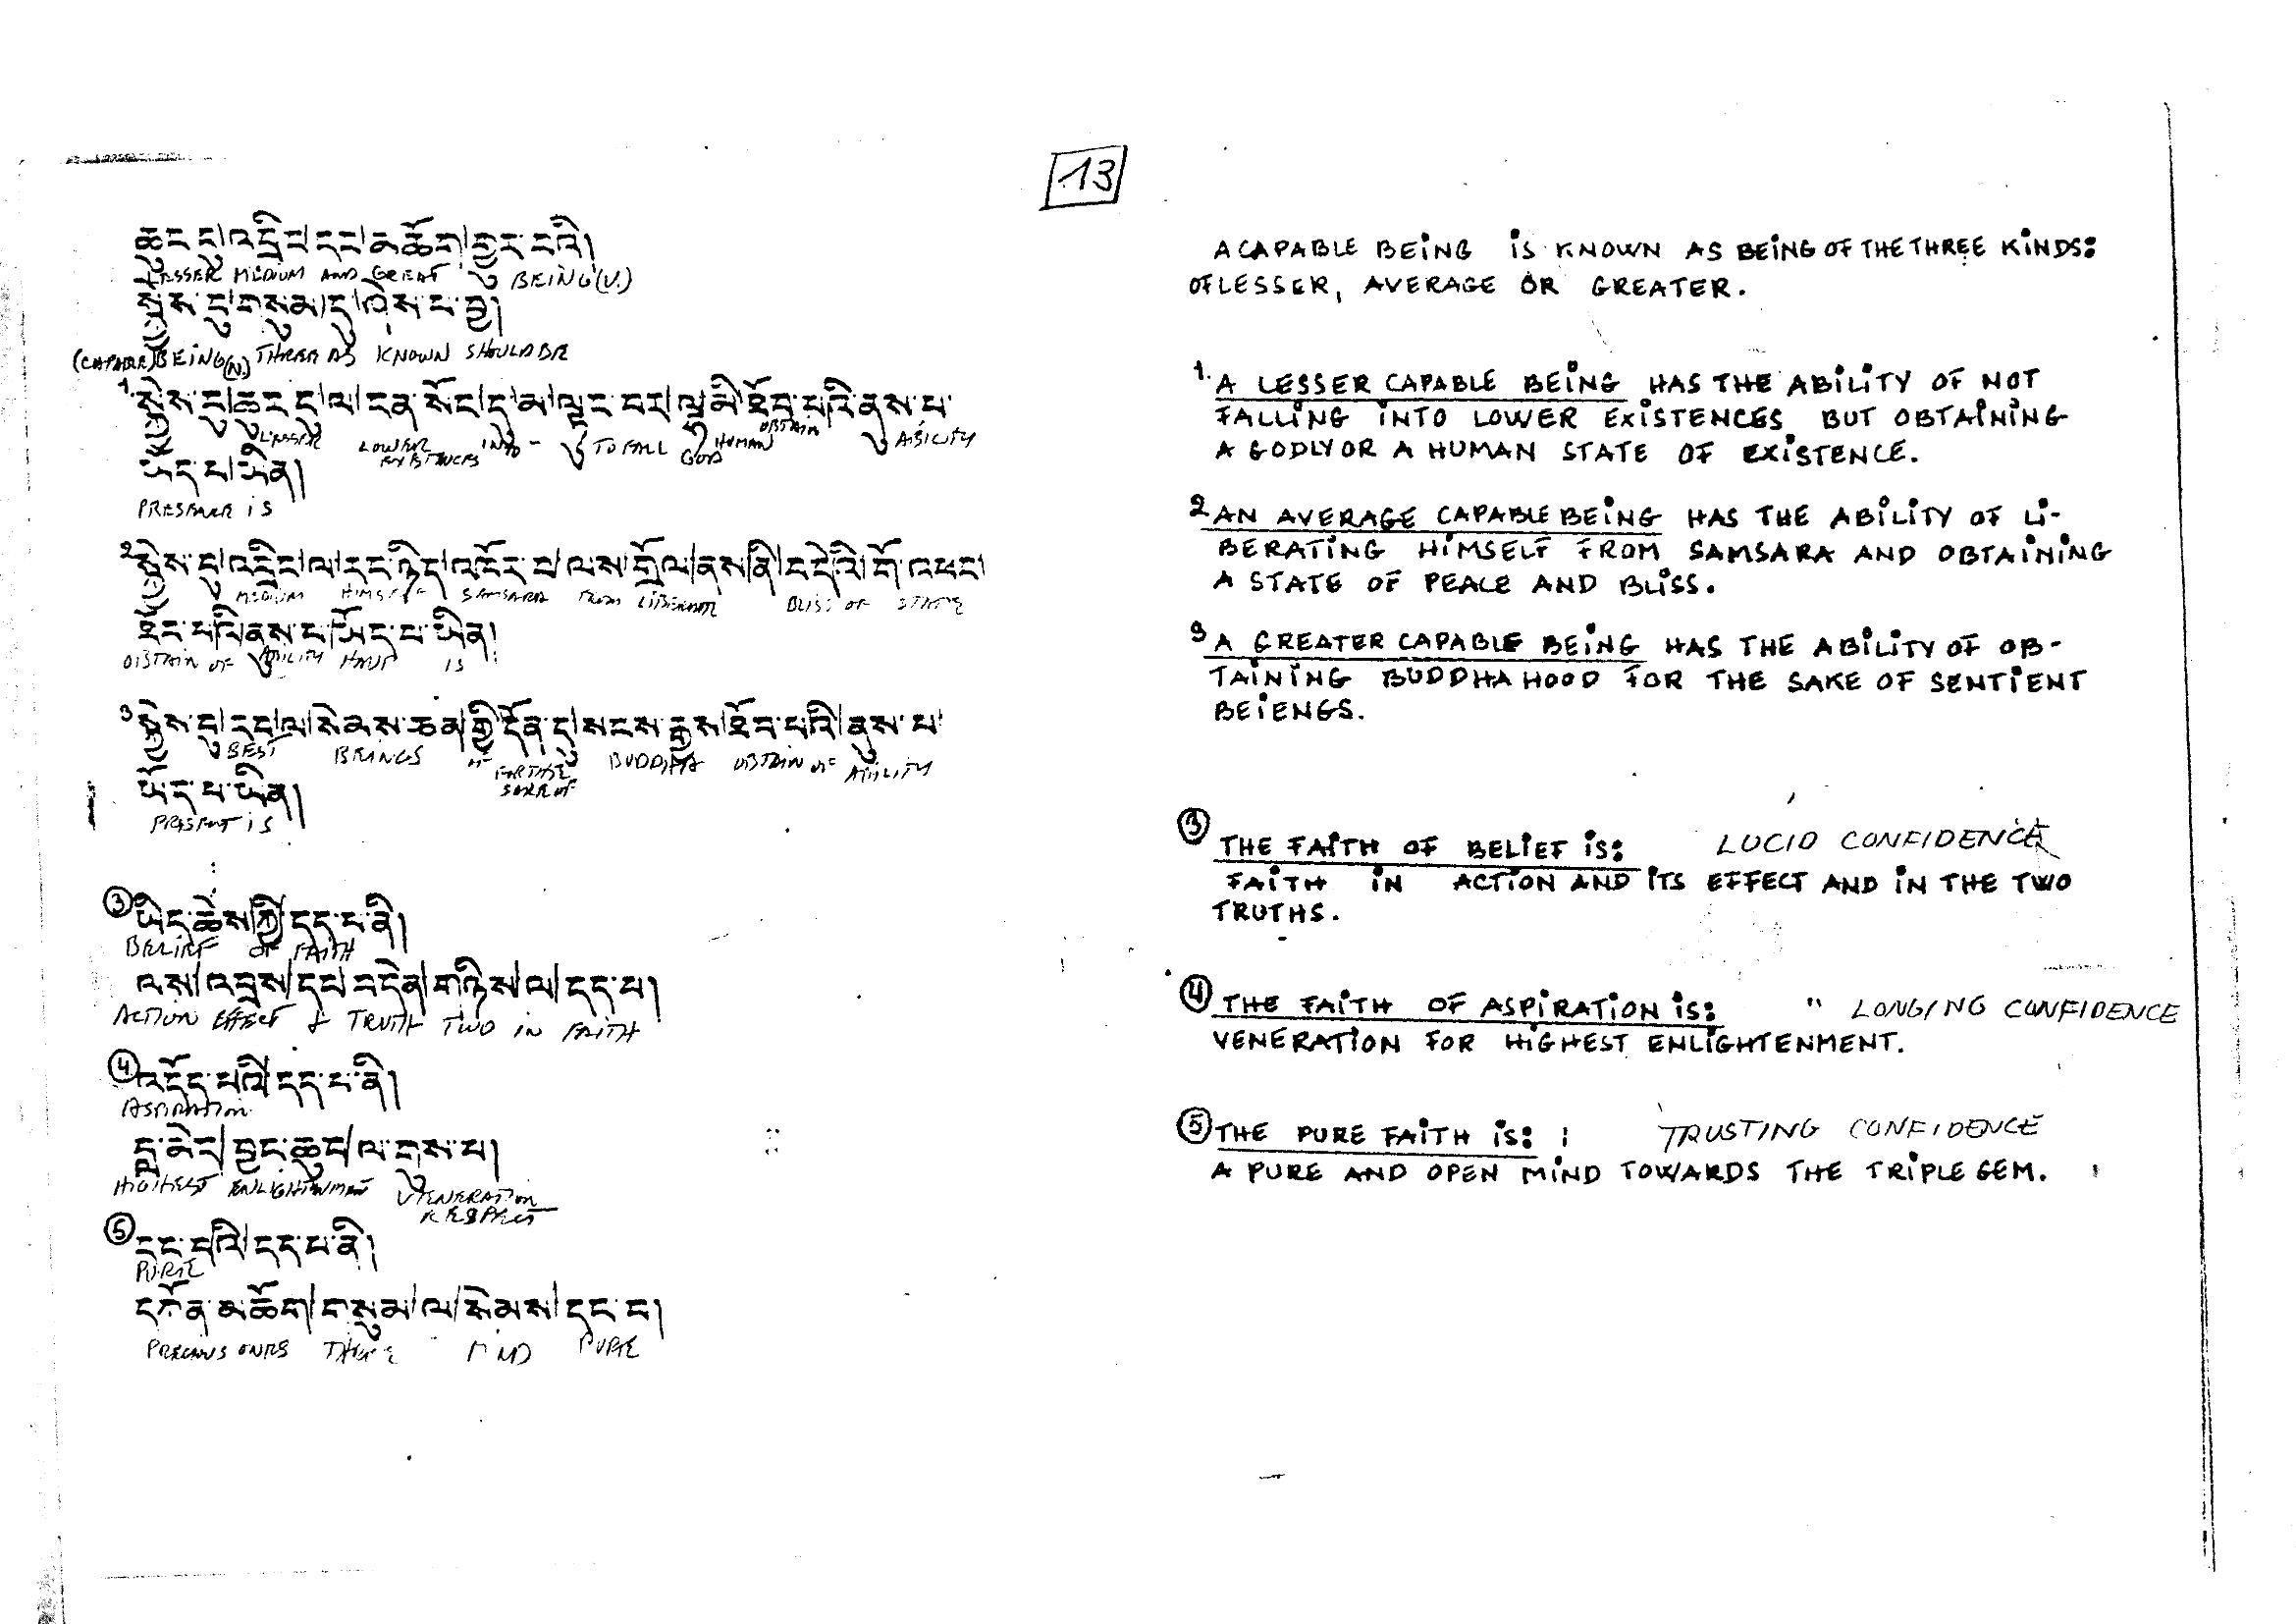 13
ཆུང་ངུ།འབྲིང།དང།མཆོག།གྱུར་པའི།
LESSER MEDIUM AND GREAT BEING (V.)
སྐྱེས་བུ།གསུམ།དུ།ཤེས་པ་བྱ།
BEING (N) THREE AS KNOWN SHOULD BE
1 སྐྱེས་བུ།ཆུང་ངུ།ལ།ངན་སོང།དུ།མ་ལྟུང་བར།ལྷ་མི་ཐོབ་པའི་ནུས་པ་
LESSER LOWER EXISTENCES INTO - TO FALL GOD HUMAN OBTAIN ABILITY
ཡོད་པ།ཡིན།
PRESENT IS
2 སྐྱེས་བུ།འབྲིང།ལ།རང་ཉིད།འཁོར་བ།ལས་གྲོལ།ནས།ཞི་བདེའི།གོ་འཕང།
MEDIUM HIMSELF SAMSARA FROM LIBERATE BLISS OF STATE
ཐོབ་པའི།ནུས་པ།ཡོད་པ་ཡིན།
OBTAIN OF ABILITY HAVE IS
3 སྐྱེས་བུ།རབ།ལ།སེམས་ཅན།གྱི་དོན་དུ།སངས་རྒྱས།ཐོབ་པའི།ནུས་པ་
BEST BEINGS OF FOR THE SAKE OF BUDDHA OBTAIN OF ABILITY
ཡོད་པ་ཡིན།
PRESENT IS
③ ཡིད་ཆེས།ཀྱི།དད་པ་ནི།
BELIEF OF FAITH
ལས།འབྲས།དང།བདེན།གཉིས།ལ།དད་པ།
ACTION EFFECT & TRUTH TWO IN FAITH
④ འདོད་པའི།དད་པ་ནི།
ASPIRATION
བླ་མེད།བྱང་ཆུབ།ལ་གུས་པ།
HIGHEST ENLIGHTENMENT VENERATION
RESPECT
⑤ དང་བའི།དད་པ་ནི།
PURE
དཀོན་མཆོག།གསུམ།ལ།སེམས།དང་བ།
PRECIOUS ONES THREE MIND PURE
A CAPABLE BEING IS KNOWN AS BEING OF THE THREE KINDS:
OF LESSER, AVERAGE OR GREATER.
1. A LESSER CAPABLE BEING HAS THE ABILITY OF NOT
FALLING INTO LOWER EXISTENCES BUT OBTAINING
A GODLY OR A HUMAN STATE OF EXISTENCE.
2 AN AVERAGE CAPABLE BEING HAS THE ABILITY OF LI-
BERATING HIMSELF FROM SAMSARA AND OBTAINING
A STATE OF PEACE AND BLISS.
3 A GREATER CAPABLE BEING HAS THE ABILITY OF OB-
TAINING BUDDHAHOOD FOR THE SAKE OF SENTIENT
BEIENGS.
③ THE FAITH OF BELIEF IS: LUCID CONFIDENCE
FAITH IN ACTION AND ITS EFFECT AND IN THE TWO
TRUTHS.
④ THE FAITH OF ASPIRATION IS: " LONGING CONFIDENCE
VENERATION FOR HIGHEST ENLIGHTENMENT.
⑤ THE PURE FAITH IS: TRUSTING CONFIDENCE
A PURE AND OPEN MIND TOWARDS THE TRIPLE GEM.